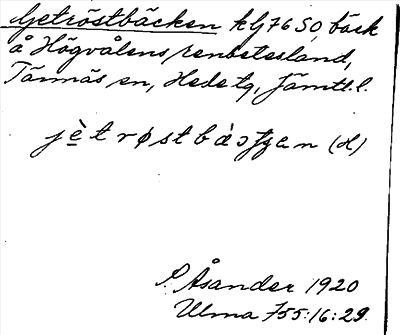 Getröstbäcken kg 76 SO, bäck
å Högvålens renbetesland,
Tännäs sn, Hede tg, Jämtl. l.
jètrøstbà
P. Åsander 1920
Ulma 755:16:29.